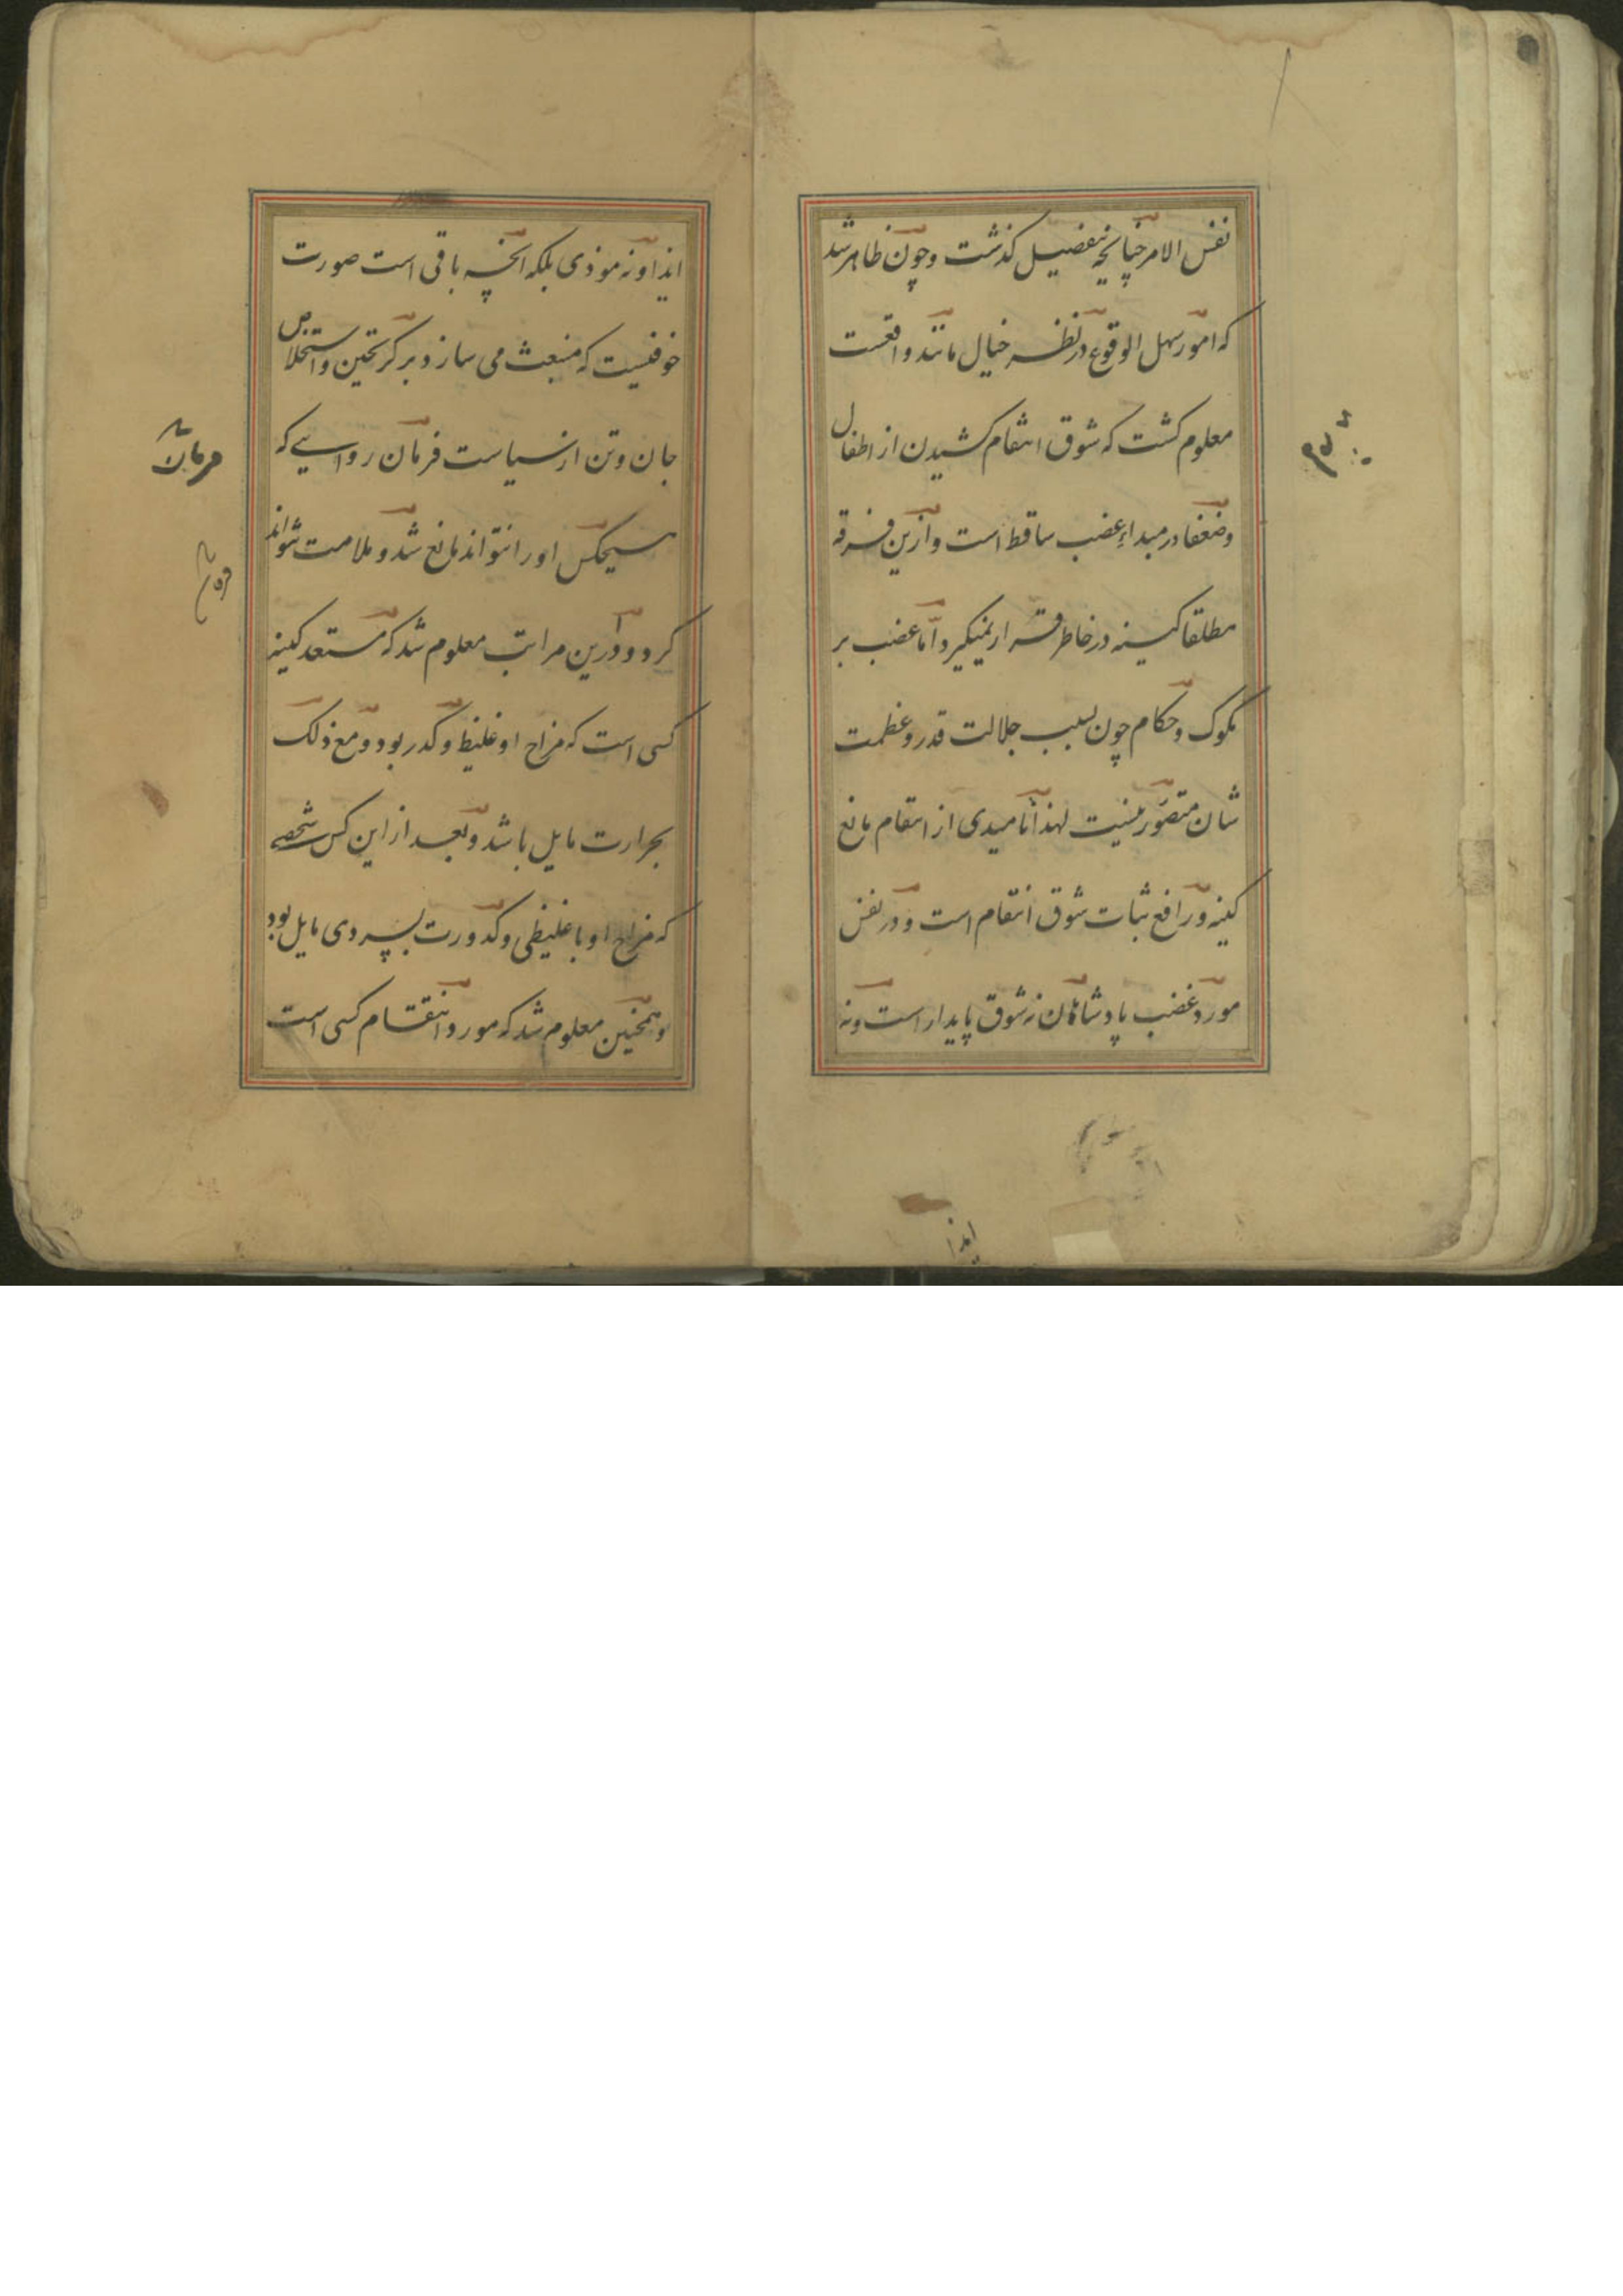 نفس الامر چنانچه بتفصیل کذشت و چون ظاهر شد
که امور سهل الوقوع در نظر خیال مانند واقعست
معلوم کشت که شوق انتقام کشیدن از اطفال
و ضعفا در مبداء غضب ساقط است و ازین فرقه
مطلقا کینه در خاطر قرار نمیکیرد و اما غضب بر
ملوک و حکام چون بسبب جلالت قدر و عظمت
شان متصور نیست لهذا نا امیدی از انتقام مانع
کینه و رافع ثبات شوق انتقام است و در نفس
مورد غضب پادشاهان نه شوق پایدار است و نه
ایذا
ایذا و نه موذی بلکه آنچه باقی است صورت
خوفیست که منبعث می سازد بر کریختن و استخلاص
جان و تن از سیاست فرمان روایی که
هیچکس او را نتواند مانع شد و ملامت تواند
کرد و درین مراتب معلوم شد که مستعد کینه
کسی است که مزاج او غلیظ و کدر بود و مع ذلک
بحرارت مایل باشد و بعد از این کس شخصی
که مزاج او با غلیظی و کدورت بسردی مایل بود
و همچنین معلوم شد که مورد انتقام کسی است